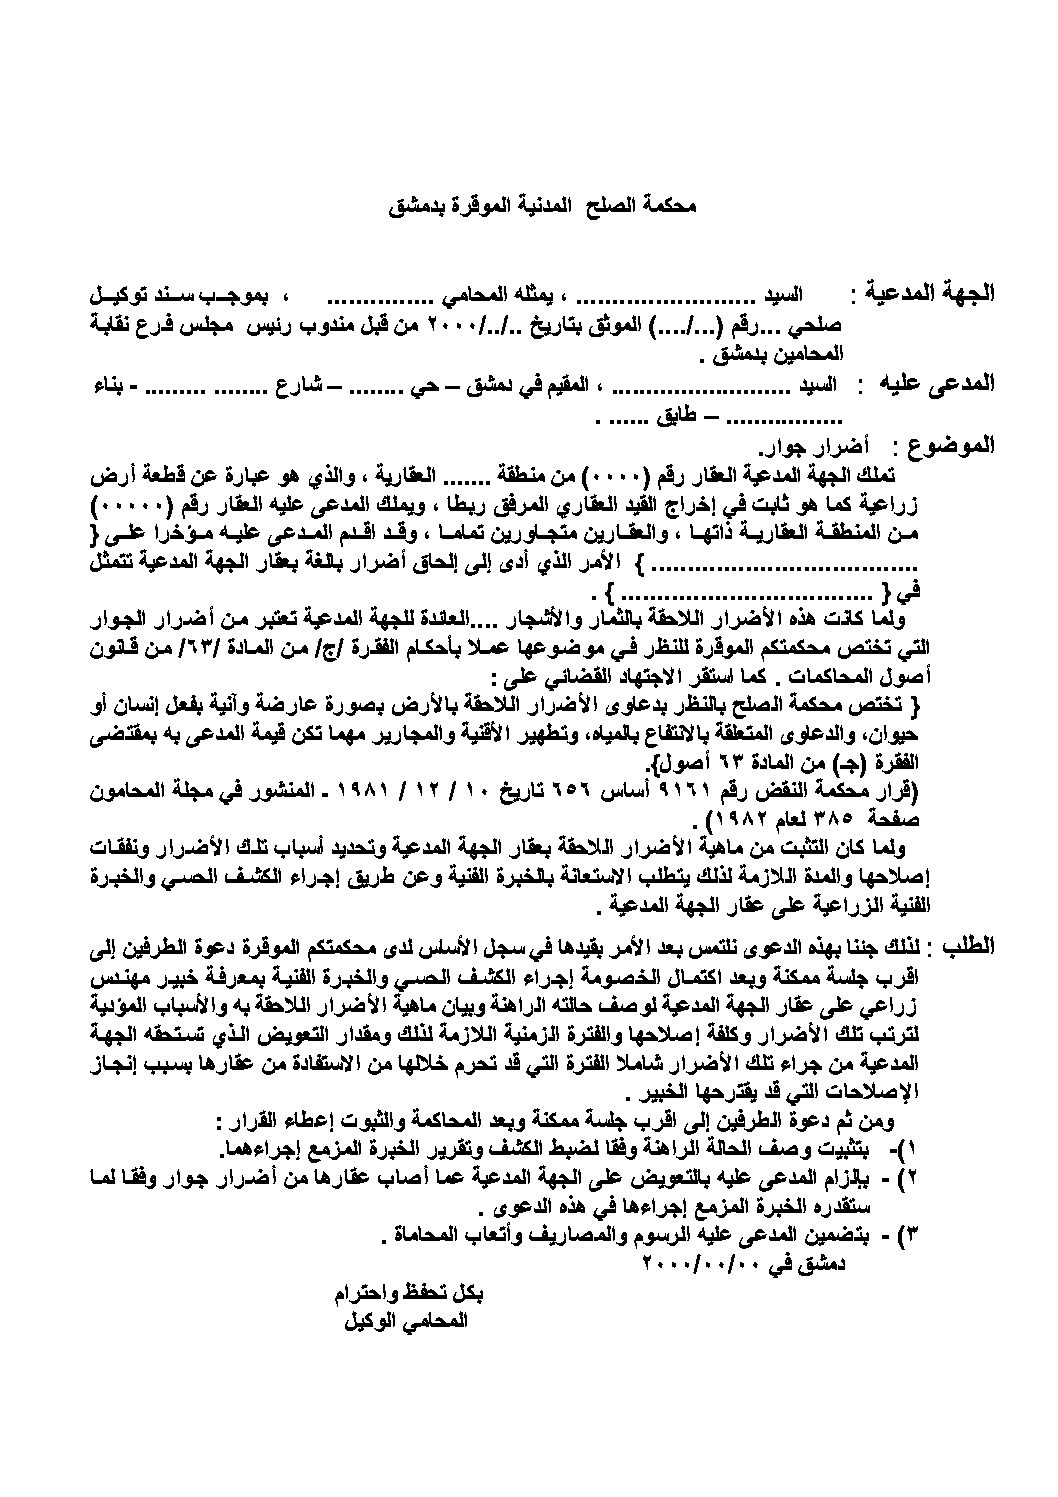 محكمة الصلح المدنية الموقرة بدمشق
الجهة المدعية : السيد ......................... ، يمثله المحامي ............... ، بموجب سند توكيل
صلحي ...رقم (.../....) الموثق بتاريخ ../../٢٠٠٠ من قبل مندوب رئيس مجلس فرع نقابة
المحامين بدمشق .
المدعى عليه : السيد ......................... ، المقيم في دمشق – حي ........ – شارع ........ ......... - بناء
................. – طابق ...... .
الموضوع : أضرار جوار.
تملك الجهة المدعية العقار رقم (٠٠٠٠) من منطقة ....... العقارية ، والذي هو عبارة عن قطعة أرض
زراعية كما هو ثابت في إخراج القيد العقاري المرفق ربطا ، ويملك المدعى عليه العقار رقم (٠٠٠٠٠)
من المنطقة العقارية ذاتها ، والعقارين متجاورين تماما ، وقد اقدم المدعى عليه مؤخرا على {
.................................... } الأمر الذي أدى إلى إلحاق أضرار بالغة بعقار الجهة المدعية تتمثل
في { .................................. } .
ولما كانت هذه الأضرار اللاحقة بالثمار والأشجار ....العائدة للجهة المدعية تعتبر من أضرار الجوار
التي تختص محكمتكم الموقرة للنظر في موضوعها عملا بأحكام الفقرة /ج/ من المادة /٦٣/ من قانون
أصول المحاكمات . كما استقر الاجتهاد القضائي على :
{ تختص محكمة الصلح بالنظر بدعاوى الأضرار اللاحقة بالأرض بصورة عارضة وآنية بفعل إنسان أو
حيوان، والدعاوى المتعلقة بالانتفاع بالمياه، وتطهير الأقنية والمجارير مهما تكن قيمة المدعى به بمقتضى
الفقرة (جـ) من المادة ٦٣ أصول}.
(قرار محكمة النقض رقم ٩١٦١ أساس ٦٥٦ تاريخ ١٠ / ١٢ / ١٩٨١ - المنشور في مجلة المحامون
صفحة ٣٨٥ لعام ١٩٨٢) .
ولما كان التثبت من ماهية الأضرار اللاحقة بعقار الجهة المدعية وتحديد أسباب تلك الأضرار ونفقات
إصلاحها والمدة اللازمة لذلك يتطلب الاستعانة بالخبرة الفنية وعن طريق إجراء الكشف الحسي والخبرة
الفنية الزراعية على عقار الجهة المدعية .
الطلب : لذلك جئنا بهذه الدعوى نلتمس بعد الأمر بقيدها في سجل الأساس لدى محكمتكم الموقرة دعوة الطرفين إلى
اقرب جلسة ممكنة وبعد اكتمال الخصومة إجراء الكشف الحسي والخبرة الفنية بمعرفة خبير مهندس
زراعي على عقار الجهة المدعية لوصف حالته الراهنة وبيان ماهية الأضرار اللاحقة به والأسباب المؤدية
لترتب تلك الأضرار وكلفة إصلاحها والفترة الزمنية اللازمة لذلك ومقدار التعويض الذي تستحقه الجهة
المدعية من جراء تلك الأضرار شاملا الفترة التي قد تحرم خلالها من الاستفادة من عقارها بسبب إنجاز
الإصلاحات التي قد يقترحها الخبير .
ومن ثم دعوة الطرفين إلى اقرب جلسة ممكنة وبعد المحاكمة والثبوت إعطاء القرار :
١)- بتثبيت وصف الحالة الراهنة وفقا لضبط الكشف وتقرير الخبرة المزمع إجراءهما.
٢) - بإلزام المدعى عليه بالتعويض على الجهة المدعية عما أصاب عقارها من أضرار جوار وفقا لما
ستقدره الخبرة المزمع إجراءها في هذه الدعوى .
٣) - بتضمين المدعى عليه الرسوم والمصاريف وأتعاب المحاماة .
دمشق في ٠٠/٠٠/٢٠٠٠
بكل تحفظ واحترام
المحامي الوكيل